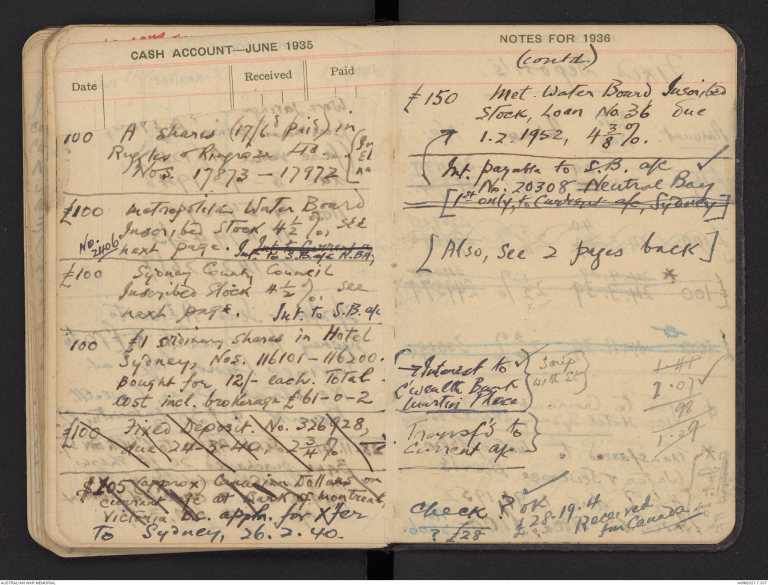 CASH ACCOUNT—JUNE 1935
Date Received Paid
100 "A" shares (17/6d paid) in
Ruffles & Ringrose Ltd.
Nos 17873 — 17972
£100 Metropolitan Water Board
Inscribed Stock 4½%, see
No. 2406 next page. Int. to Current a/c
Int. to S.B. a/c N.BA,
£100 Sydney County Council
Inscribed Stock 4½%, see
next page. Int. to S.B. a/c
100 £1 ordinary shares in Hotel
Sydney, Nos. 116101 — 116200.
Bought for 12/- each. Total
cost incl. brokerage £61-0-2
£100 Fixed Deposit No. 326928,
due 24-3-40, 2¾%
$105 (approx) Canadian Dollars on
current a/c at Bank of Montreal,
Victoria B.C. appln. for Xfer
To Sydney, 26.2.40.
NOTES FOR 1936
(contd)
£150 Met. Water Board Inscribed
Stock, Loan No. 36 due
1.2.1952, 4⅜%.
Int. payable to S.B. a/c ✓
No. 20308 Neutral Bay
[1st only, to Current a/c, Sydney]
[Also, see 2 pages back]
*
Interest to ✓
C'wealth Bank
Martin Place
Scrip
with It
1.41
1.07 ✓
98
1.09
Transf'd to
Current a/c
Check R OK ✓
? £28
£28.19.4
Received
for Canada
AUSTRALIAN WAR MEMORIAL
AWM2021.7.107